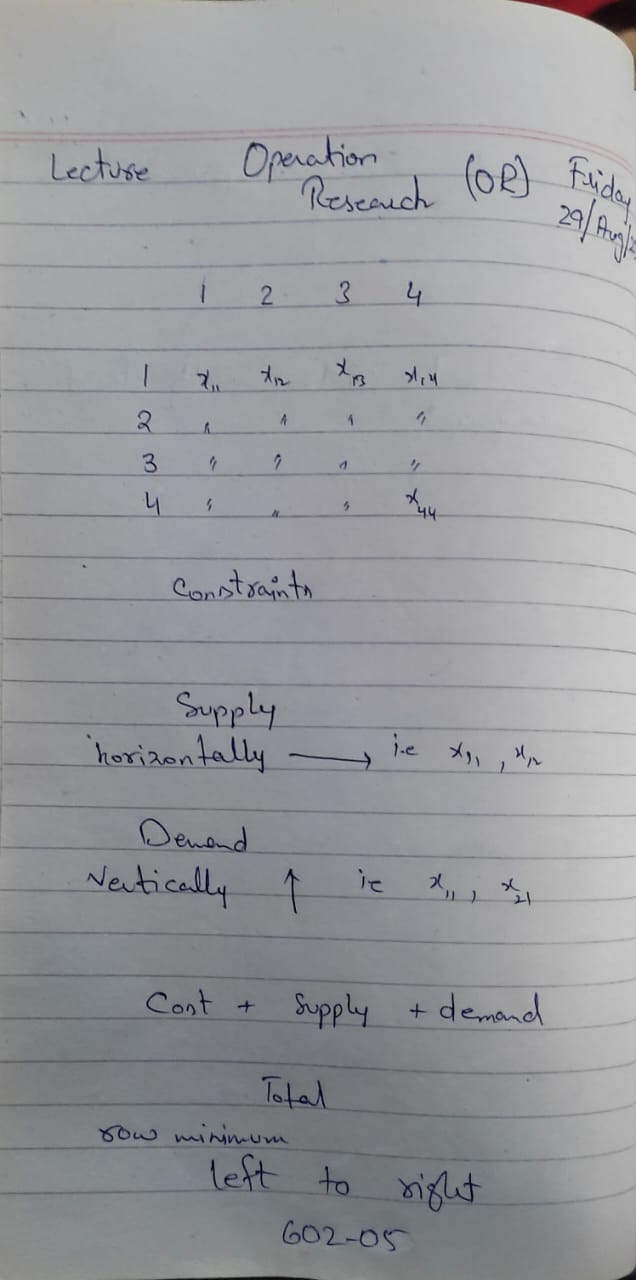 Lecture Operation Research (OR) Friday
29/Aug/2
1 2 3 4
1 x₁₁ x₁₂ x₁₃ x₁₄
2 " " " "
3 " " " "
4 " " " x₄₄
Constraints
Supply
horizontally → i.e x₁₁ , x₁₂
Demand
Vertically ↑ ie x₁₁ , x₂₁
Cost + Supply + demand
Total
row minimum
left to right
602-05